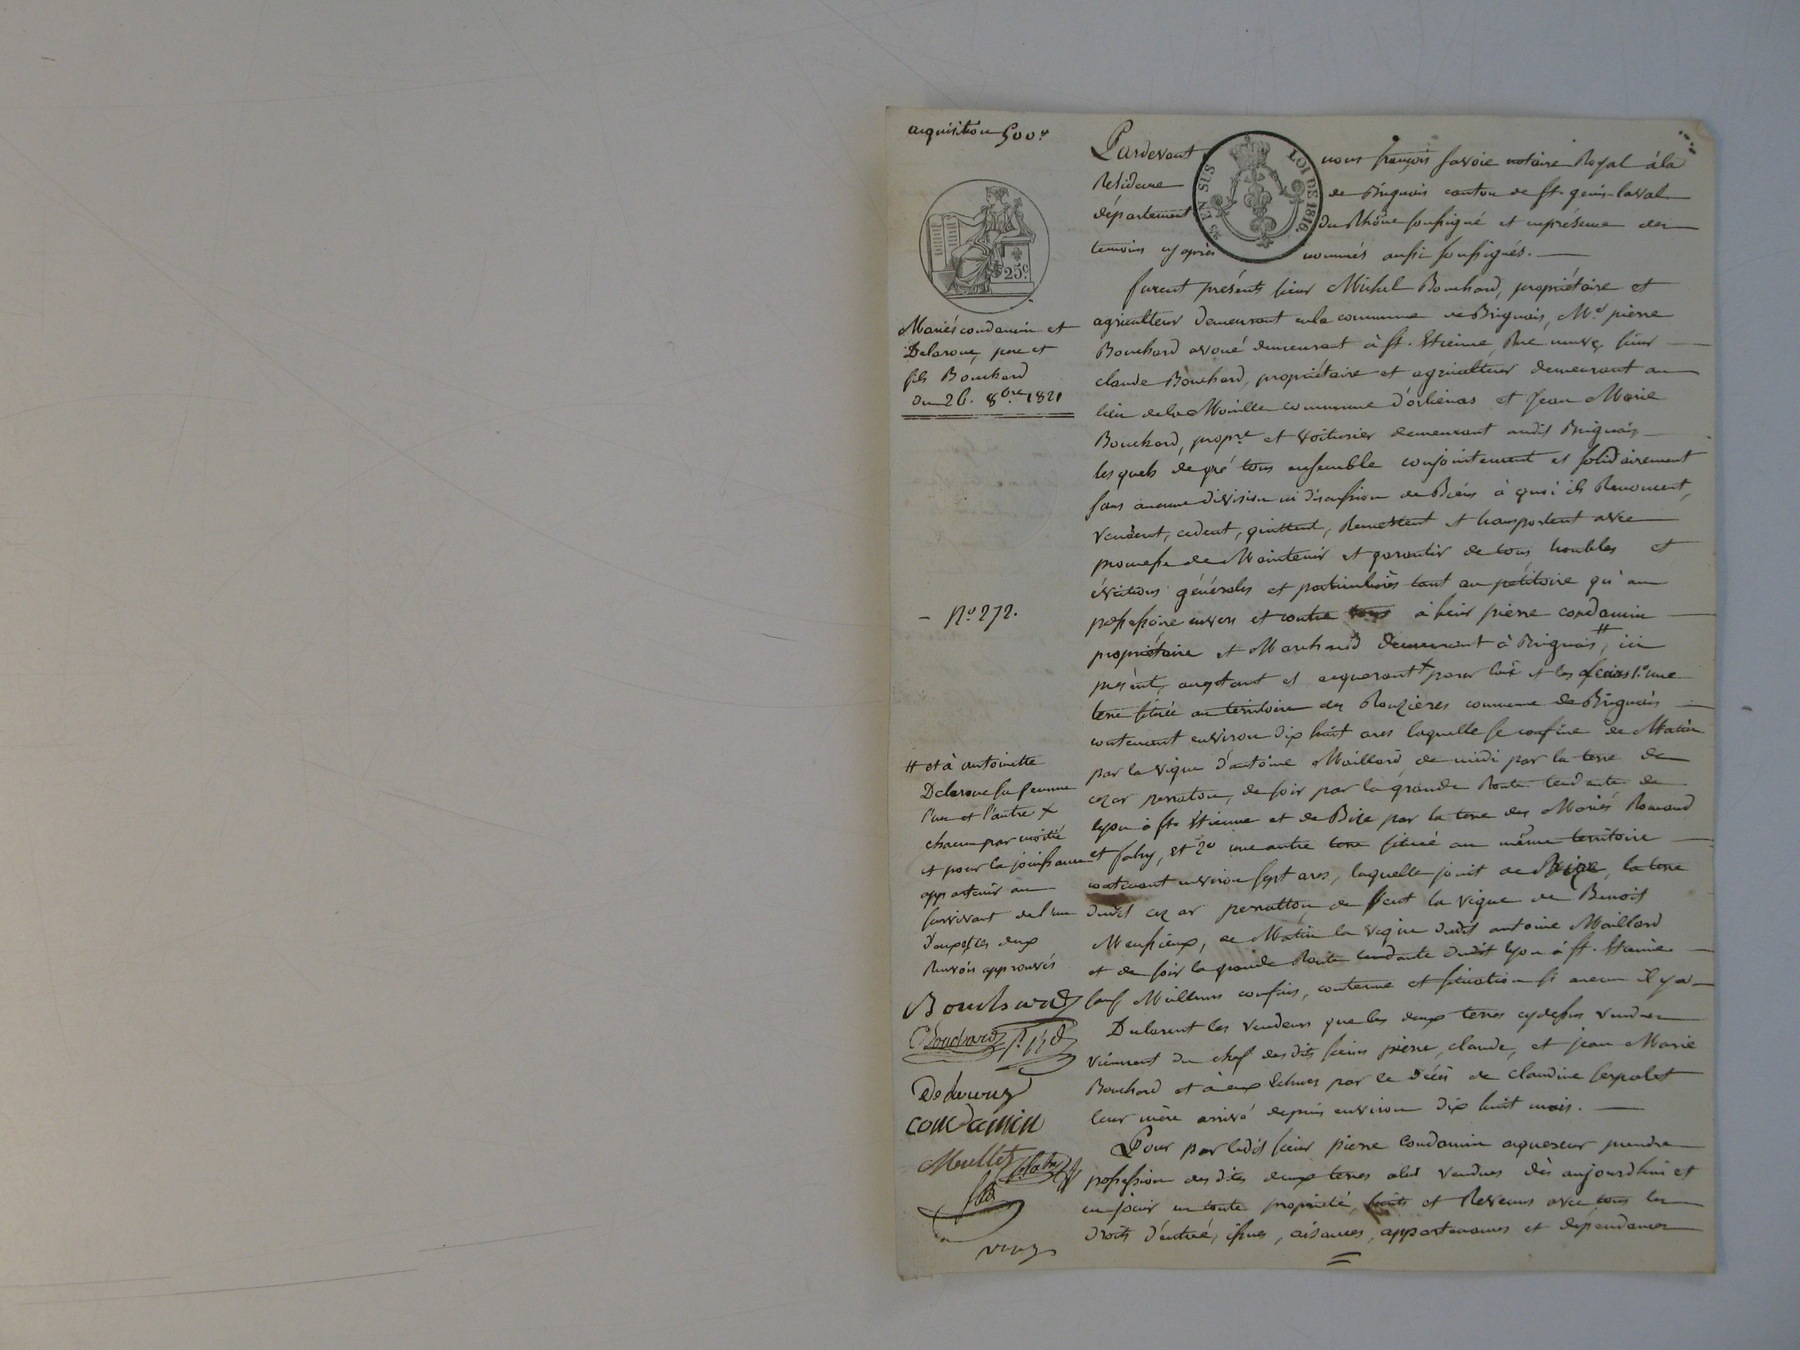 acquisition 500 f
25 c
Mariés condamin et
Delaroue, pere et
fils Bouchard
du 26. 8bre 1821
- N.o 272.
# et à antoinette
Delaroue sa femme
l'un et l'autre x
chacun par moitié
et pour la jouissance
appartenir au
survivant de l'un
d'eux
renvois approuvés
Bouchard
Bouchard
condamin
25 EN SUS LOI DE 1816.
Pardevant nous françois savoie notaire Royal à la
Résidence de Brignais canton de st. genis-laval
département du Rhône soussigné et enprésence des
temoins cy après nommés aussi soussignés. —
furent présents sieur Michel Bouchard, propriétaire et
agriculteur demeurant enla commune de Brignais, Me. pierre
Bouchard avoué demeurant à st. Etienne, Rue neuve, sieur
claude Bouchard, propriétaire et agriculteur demeurant au
lieu dela Mouille commune d'orliénas et Jean Marie
Bouchard, propre. et voiturier demeurant audit Brignais
lesquels de gré tous ensemble conjointement et solidairement
sans aucune division ni discussion de Biens à quoi ils Renoncent,
vendent, cedent, quittent, Remettent et transportent avec
promesse de Maintenir et garantir de tous troubles et
évictions générales et particulières tant au pétitoire qu'au
possessoire envers et contre tous à sieur pierre condamin
propriétaire et Marchand demeurant à Brignais, # ici
présent, acceptant et acquerant x pour lui et les siens 1.o une
terre située au territoire des Rouzières commune de Brignais
contenant environ dix huit ares laquelle se confine de Matin
par la vigne d'antoine Maillard, de midi par la terre de
cezar perraton, de soir par la grande Route tendante de
lyon à st. Etienne et de Bize par la terre des Mariés Romand
et fahy, et 2.o une autre terre située au même territoire
contenant environ sept ares, laquelle joint de Bize, la terre
dudit cezar perratton, de vent la vigne de Benoit
Messieux, de Matin la vigne dudit antoine Maillard
et de soir la grande Route tendante dudit lyon à st. Etienne
sauf Meilleurs confins, contenue et situation si aucun il y a
Declarent les vendeurs que les deux terres cydessus vendues
viennent du chef desdits sieurs pierre, claude, et jean Marie
Bouchard et à eux Echues par le décès de claudine serpolet
leur mère arrivé depuis environ dix huit mois. —
Pour par ledit sieur pierre condamin acquereur prendre
possession desdites deux terres à lui vendues dès aujourdhui et
en jouir en toute propriété, fruits et Revenus avec tous les
droits d'entrée, issues, aisances, appartenances et dépendances